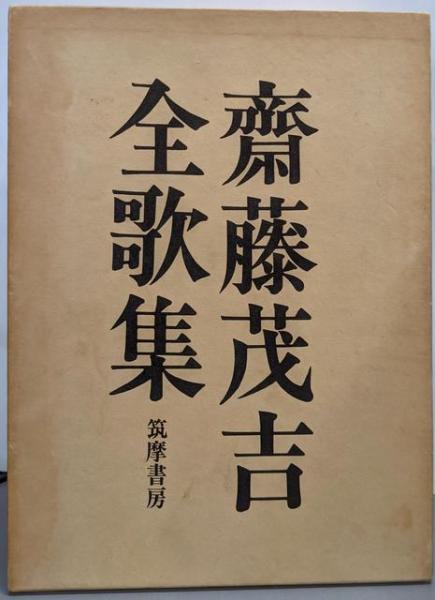 齋藤茂吉
全歌集
筑摩書房